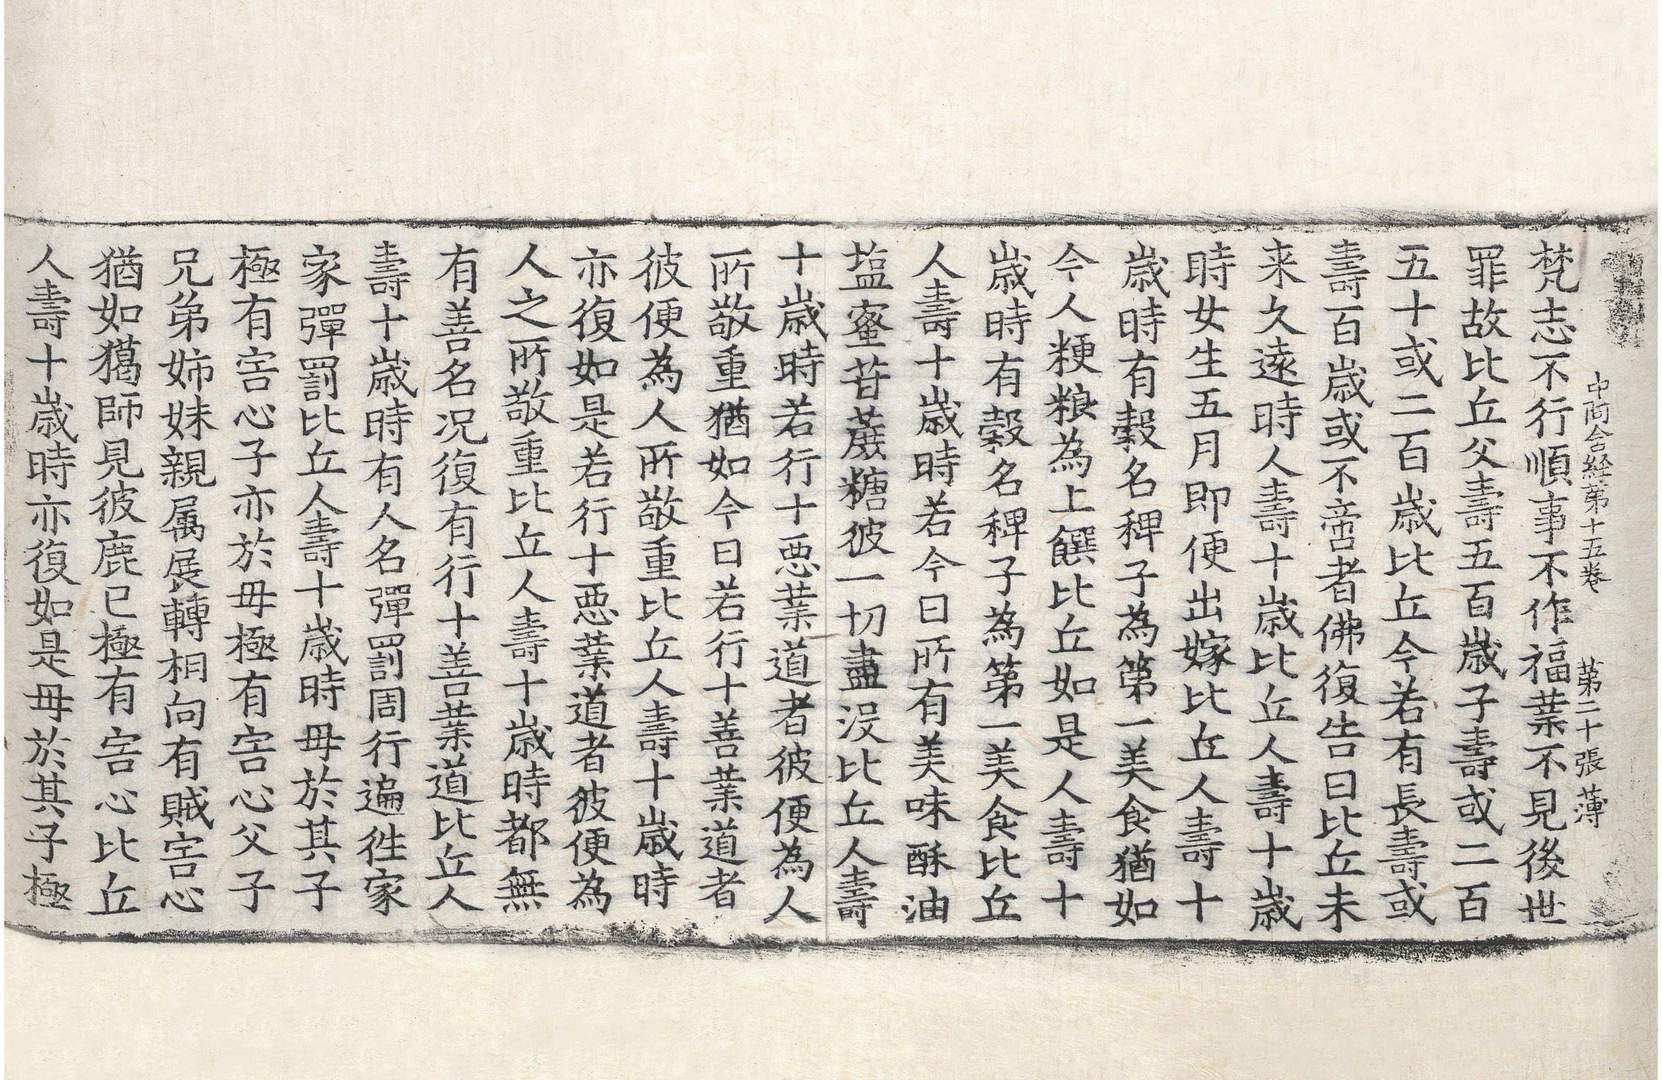 中阿含経第十五卷　第二十張　薄
梵志不行順事不作福葉不見後世
罪故比丘父壽五百歲子壽或二百
五十或二百歲比丘今若有長壽或
壽百歲或不啻者佛復告曰比丘未
来久遠時人壽十歲比丘人壽十歲
時女生五月即便出嫁比丘人壽十
歲時有穀名稗子為第一美食猶如
今人粳粮為上饌比丘如是人壽十
歲時有穀名稗子為第一美食比丘
人壽十歲時若今日所有美味酥油
塩蜜苷蔗糖彼一切盡没比丘人壽
十歲時若行十惡葉道者彼便為人
所敬重猶如今日若行十善葉道者
彼便為人所敬重比丘人壽十歲時
亦復如是若行十惡葉道者彼便為
人之所敬重比丘人壽十歲時都無
有善名况復有行十善葉道比丘人
壽十歲時有人名彈罰周行遍徃家
家彈罰比丘人壽十歲時母於其子
極有害心子亦於母極有害心父子
兄弟姉妹親属展轉相向有賊害心
猶如獦師見彼鹿已極有害心比丘
人壽十歲時亦復如是母於其子極